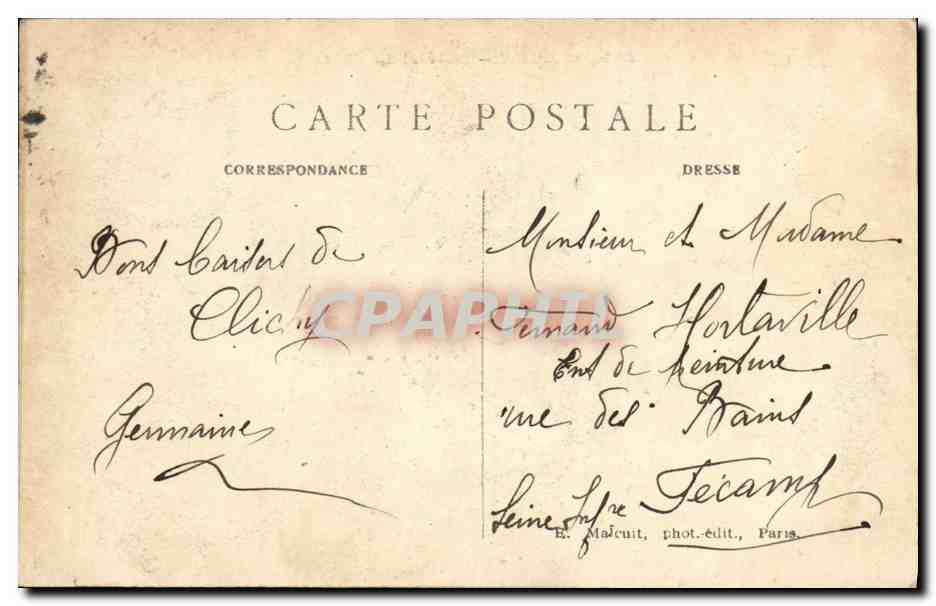 CARTE POSTALE
CORRESPONDANCE
DRESSE
Bons baisers de
Clichy
Germaine
Monsieur et Madame
Fernand Hortaville
Ent de peinture
rue des Bains
Fécamp
Seine Infre
E. Malcuit, phot.-édit., Paris.
CPAPHIL